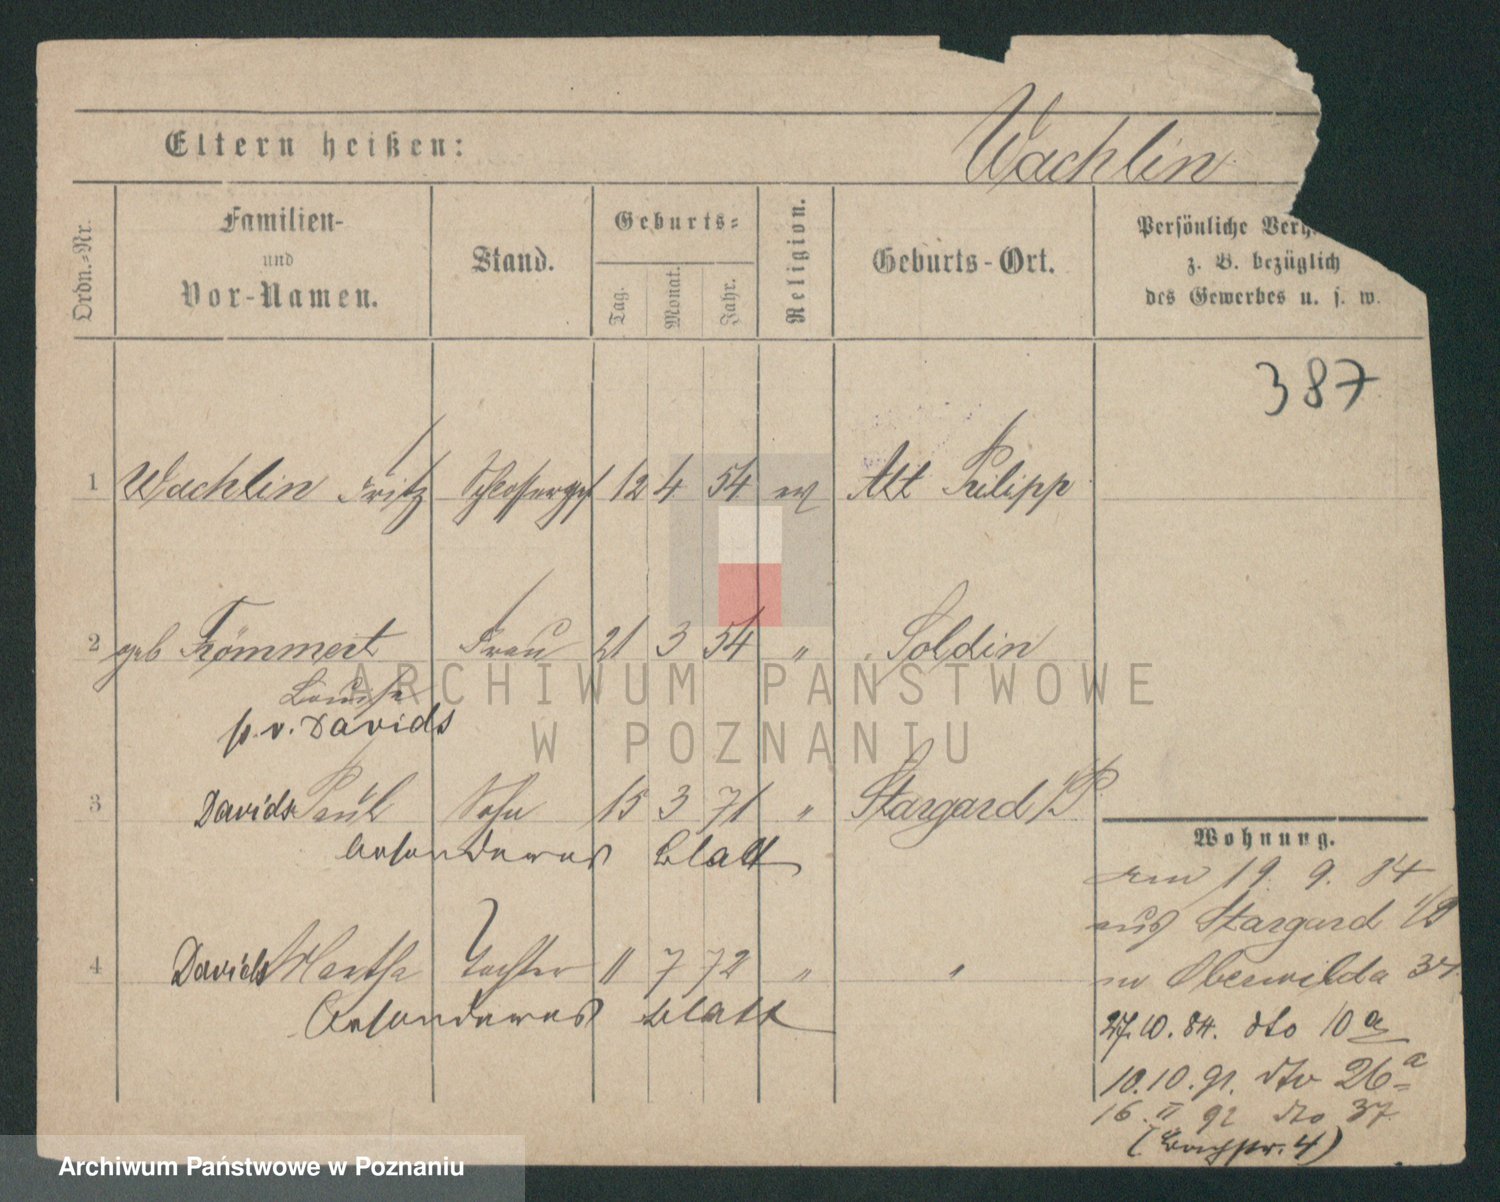 Eltern heißen: Wachlin
Ordn.-Nr.
Familien-
und
Vor-Namen.
Stand.
Geburts-
Tag.
Monat.
Jahr.
Religion.
Geburts-Ort.
Persönliche
z. B. bezüglich
des Gewerbes u. s. w.
387
1 Wachlin Fritz Schlosserges 12 4 54 ev Alt Philipp
2 geb Frömmert Frau 21 3 54 " Soldin
Louise
p. v. Davids
3 Davids Paul Sohn 15 3 71 " Stargard i/P
besonderes Blatt
4 Davids Martha Tochter 11 7 72 " "
Besonderes Blatt
Wohnung.
am 19. 9. 84
aus Stargard i/P
in Oberwilda 34.
27.10.84. dto 10 a
10.10.91. dto 26 a
16. II 92 dto 37
ARCHIWUM PAŃSTWOWE
W POZNANIU
Archiwum Państwowe w Poznaniu